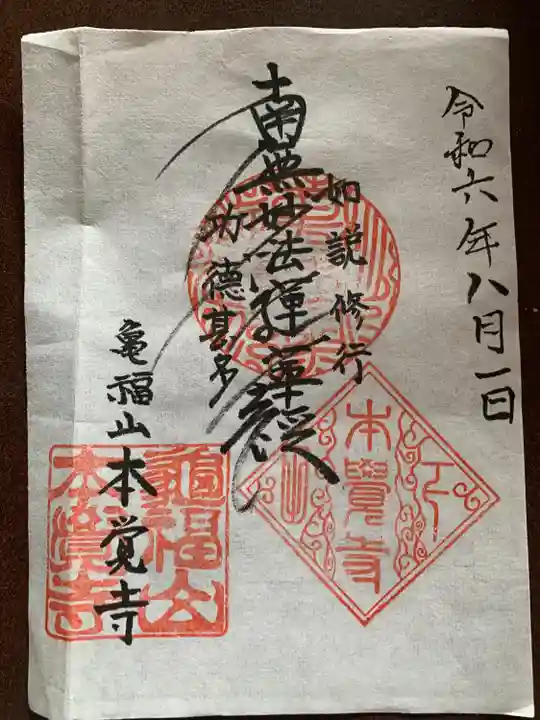 令和六年八月一日
如説修行
南無妙法蓮華経
功徳甚多
亀福山本覚寺
本覺寺
龜福山
本覺寺